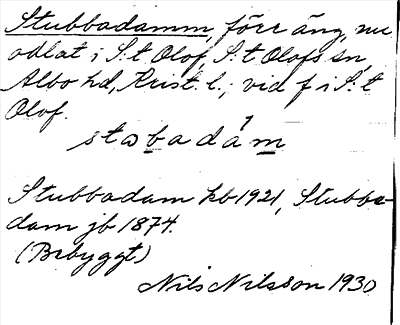 Stubbadamm, förr äng, nu
odlat i S:t Olof, S:t Olofs sn,
Albo hd, Krist. l.; vid f i S:t
Olof.
stəbadám
Stubbadam kb 1921, Stubba-
dam jb 1874.
(Bebyggt)
Nils Nilsson 1930